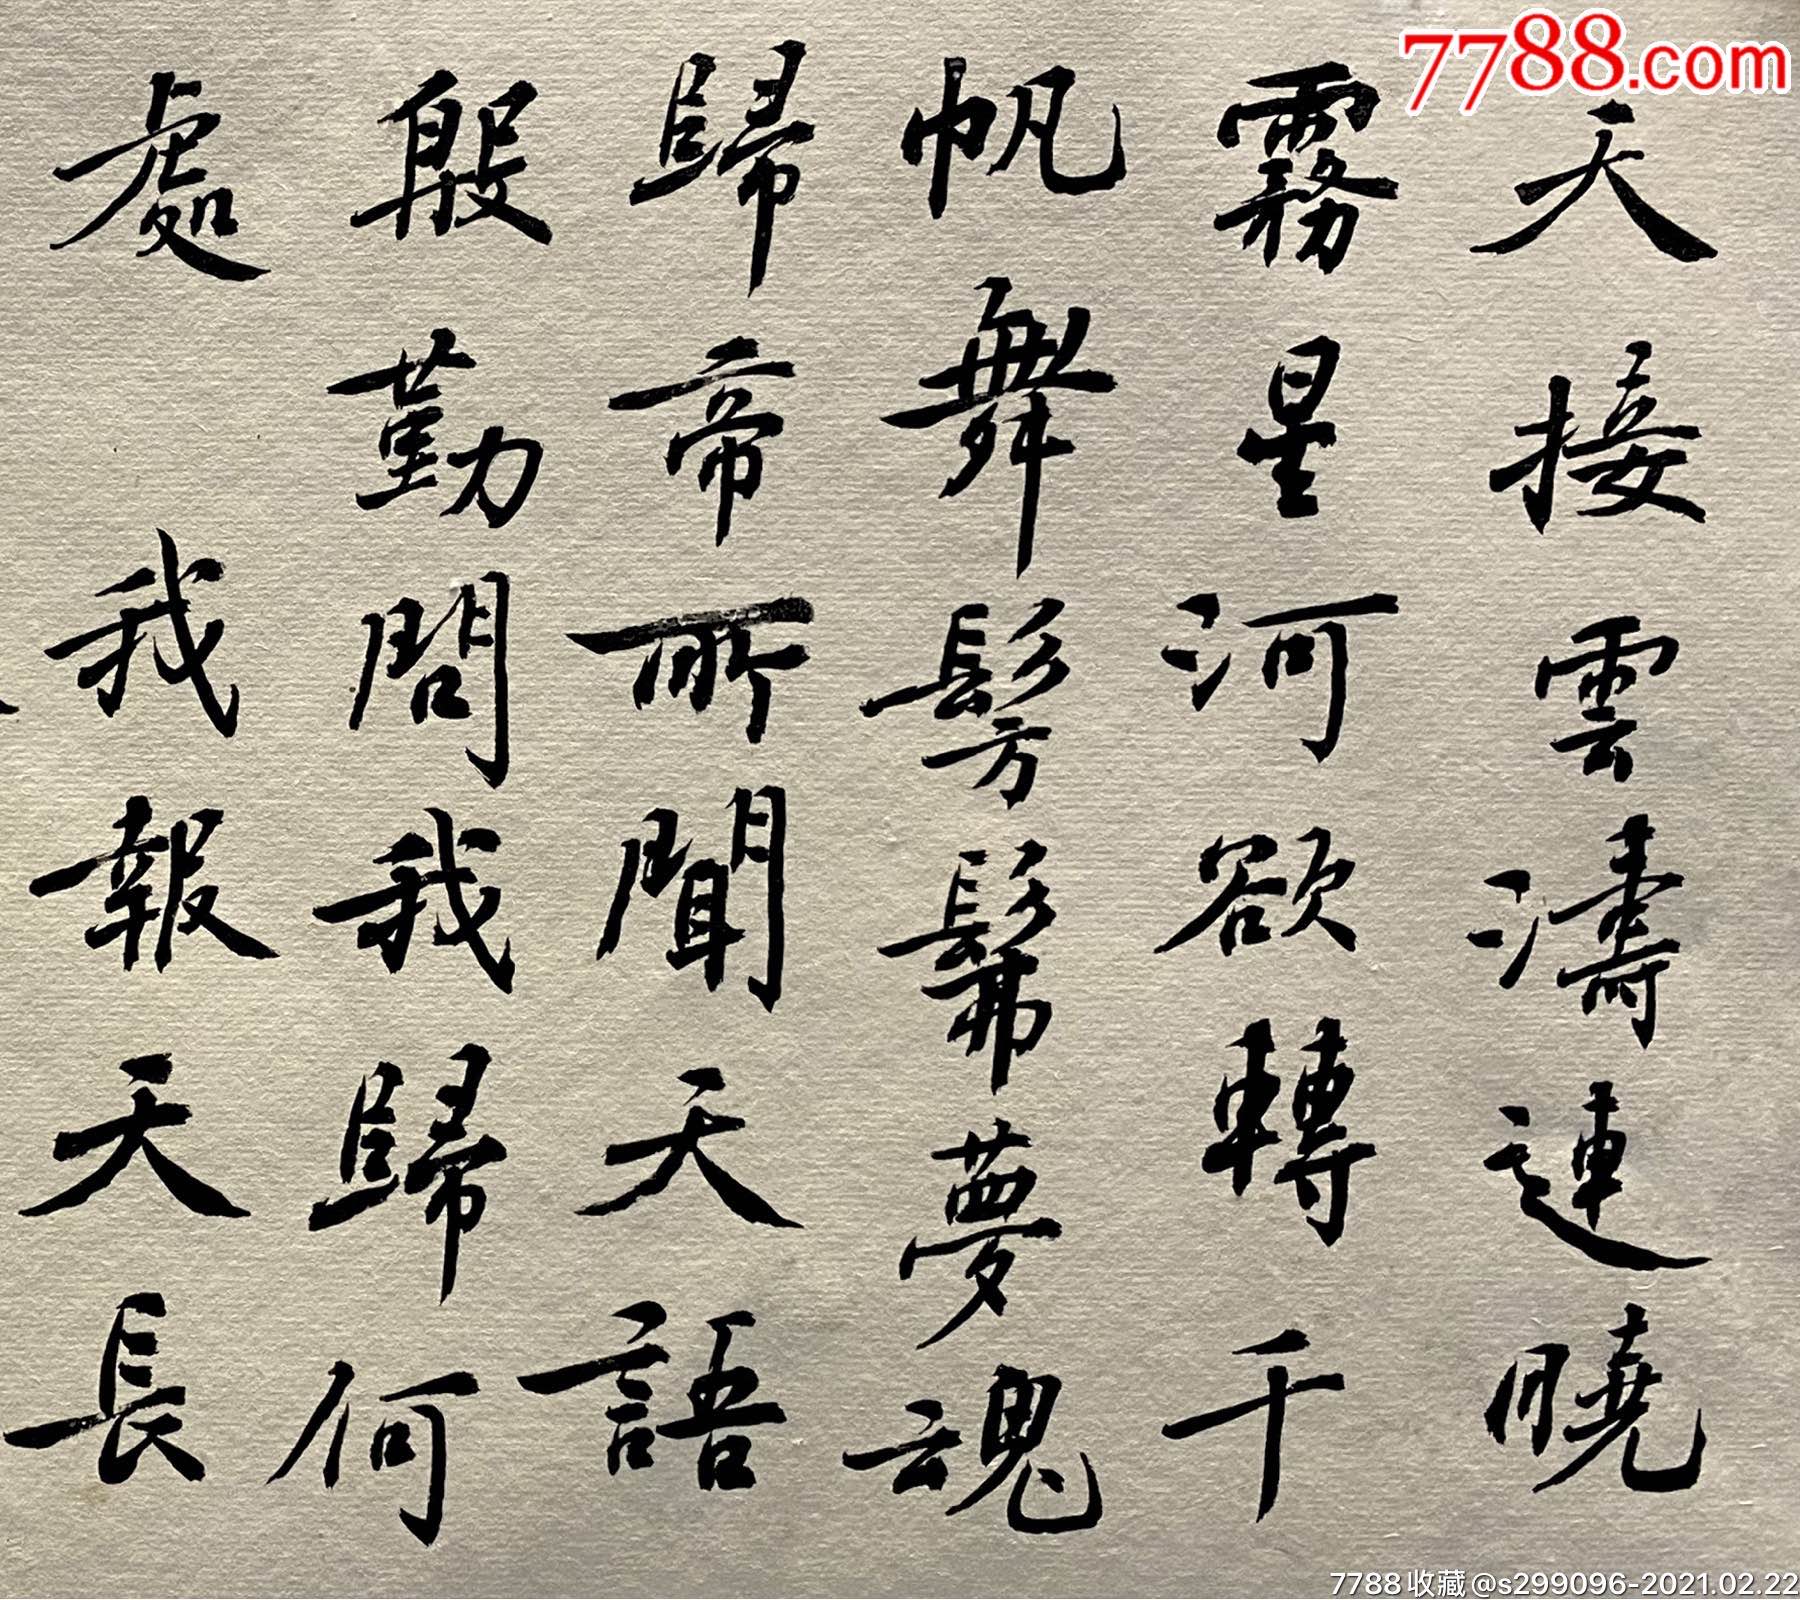 天接雲濤連曉
霧星河欲轉千
帆舞髣髴夢魂
歸帝所聞天語
殷勤問我歸何
處 我報天長
7788.com
7788收藏@s299096-2021.02.22